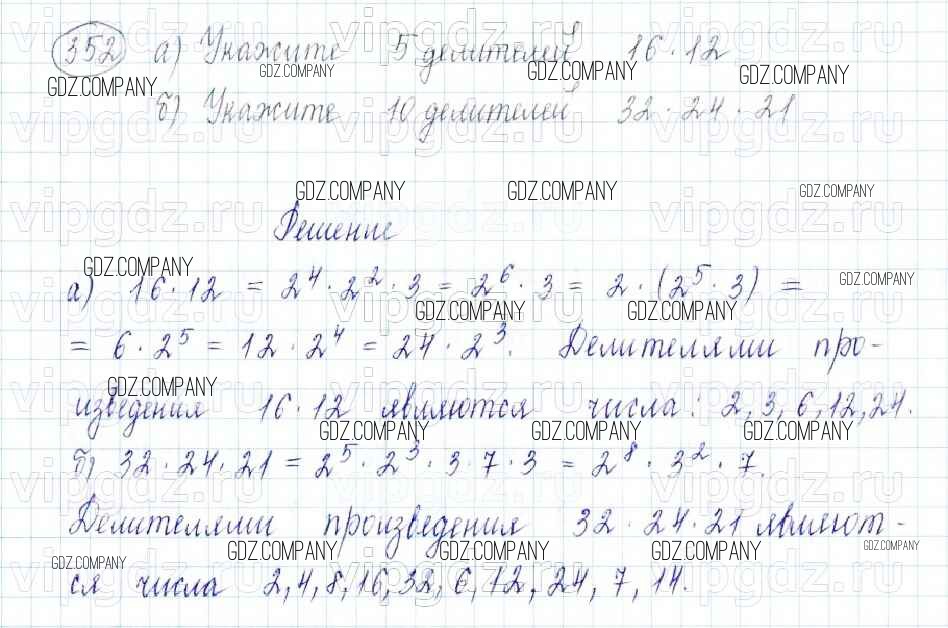 352 а) Укажите 5 делителей 16 · 12
б) Укажите 10 делителей 32 · 24 · 21
Решение
а) 16 · 12 = 2⁴ · 2² · 3 = 2⁶ · 3 = 2 · (2⁵ · 3) =
= 6 · 2⁵ = 12 · 2⁴ = 24 · 2³. Делителями про-
изведения 16 · 12 являются числа: 2, 3, 6, 12, 24.
б) 32 · 24 · 21 = 2⁵ · 2³ · 3 · 7 · 3 = 2⁸ · 3² · 7.
Делителями произведения 32 · 24 · 21 являют-
ся числа 2, 4, 8, 16, 32, 6, 12, 24, 7, 14.
GDZ.COMPANY
vipgdz.ru